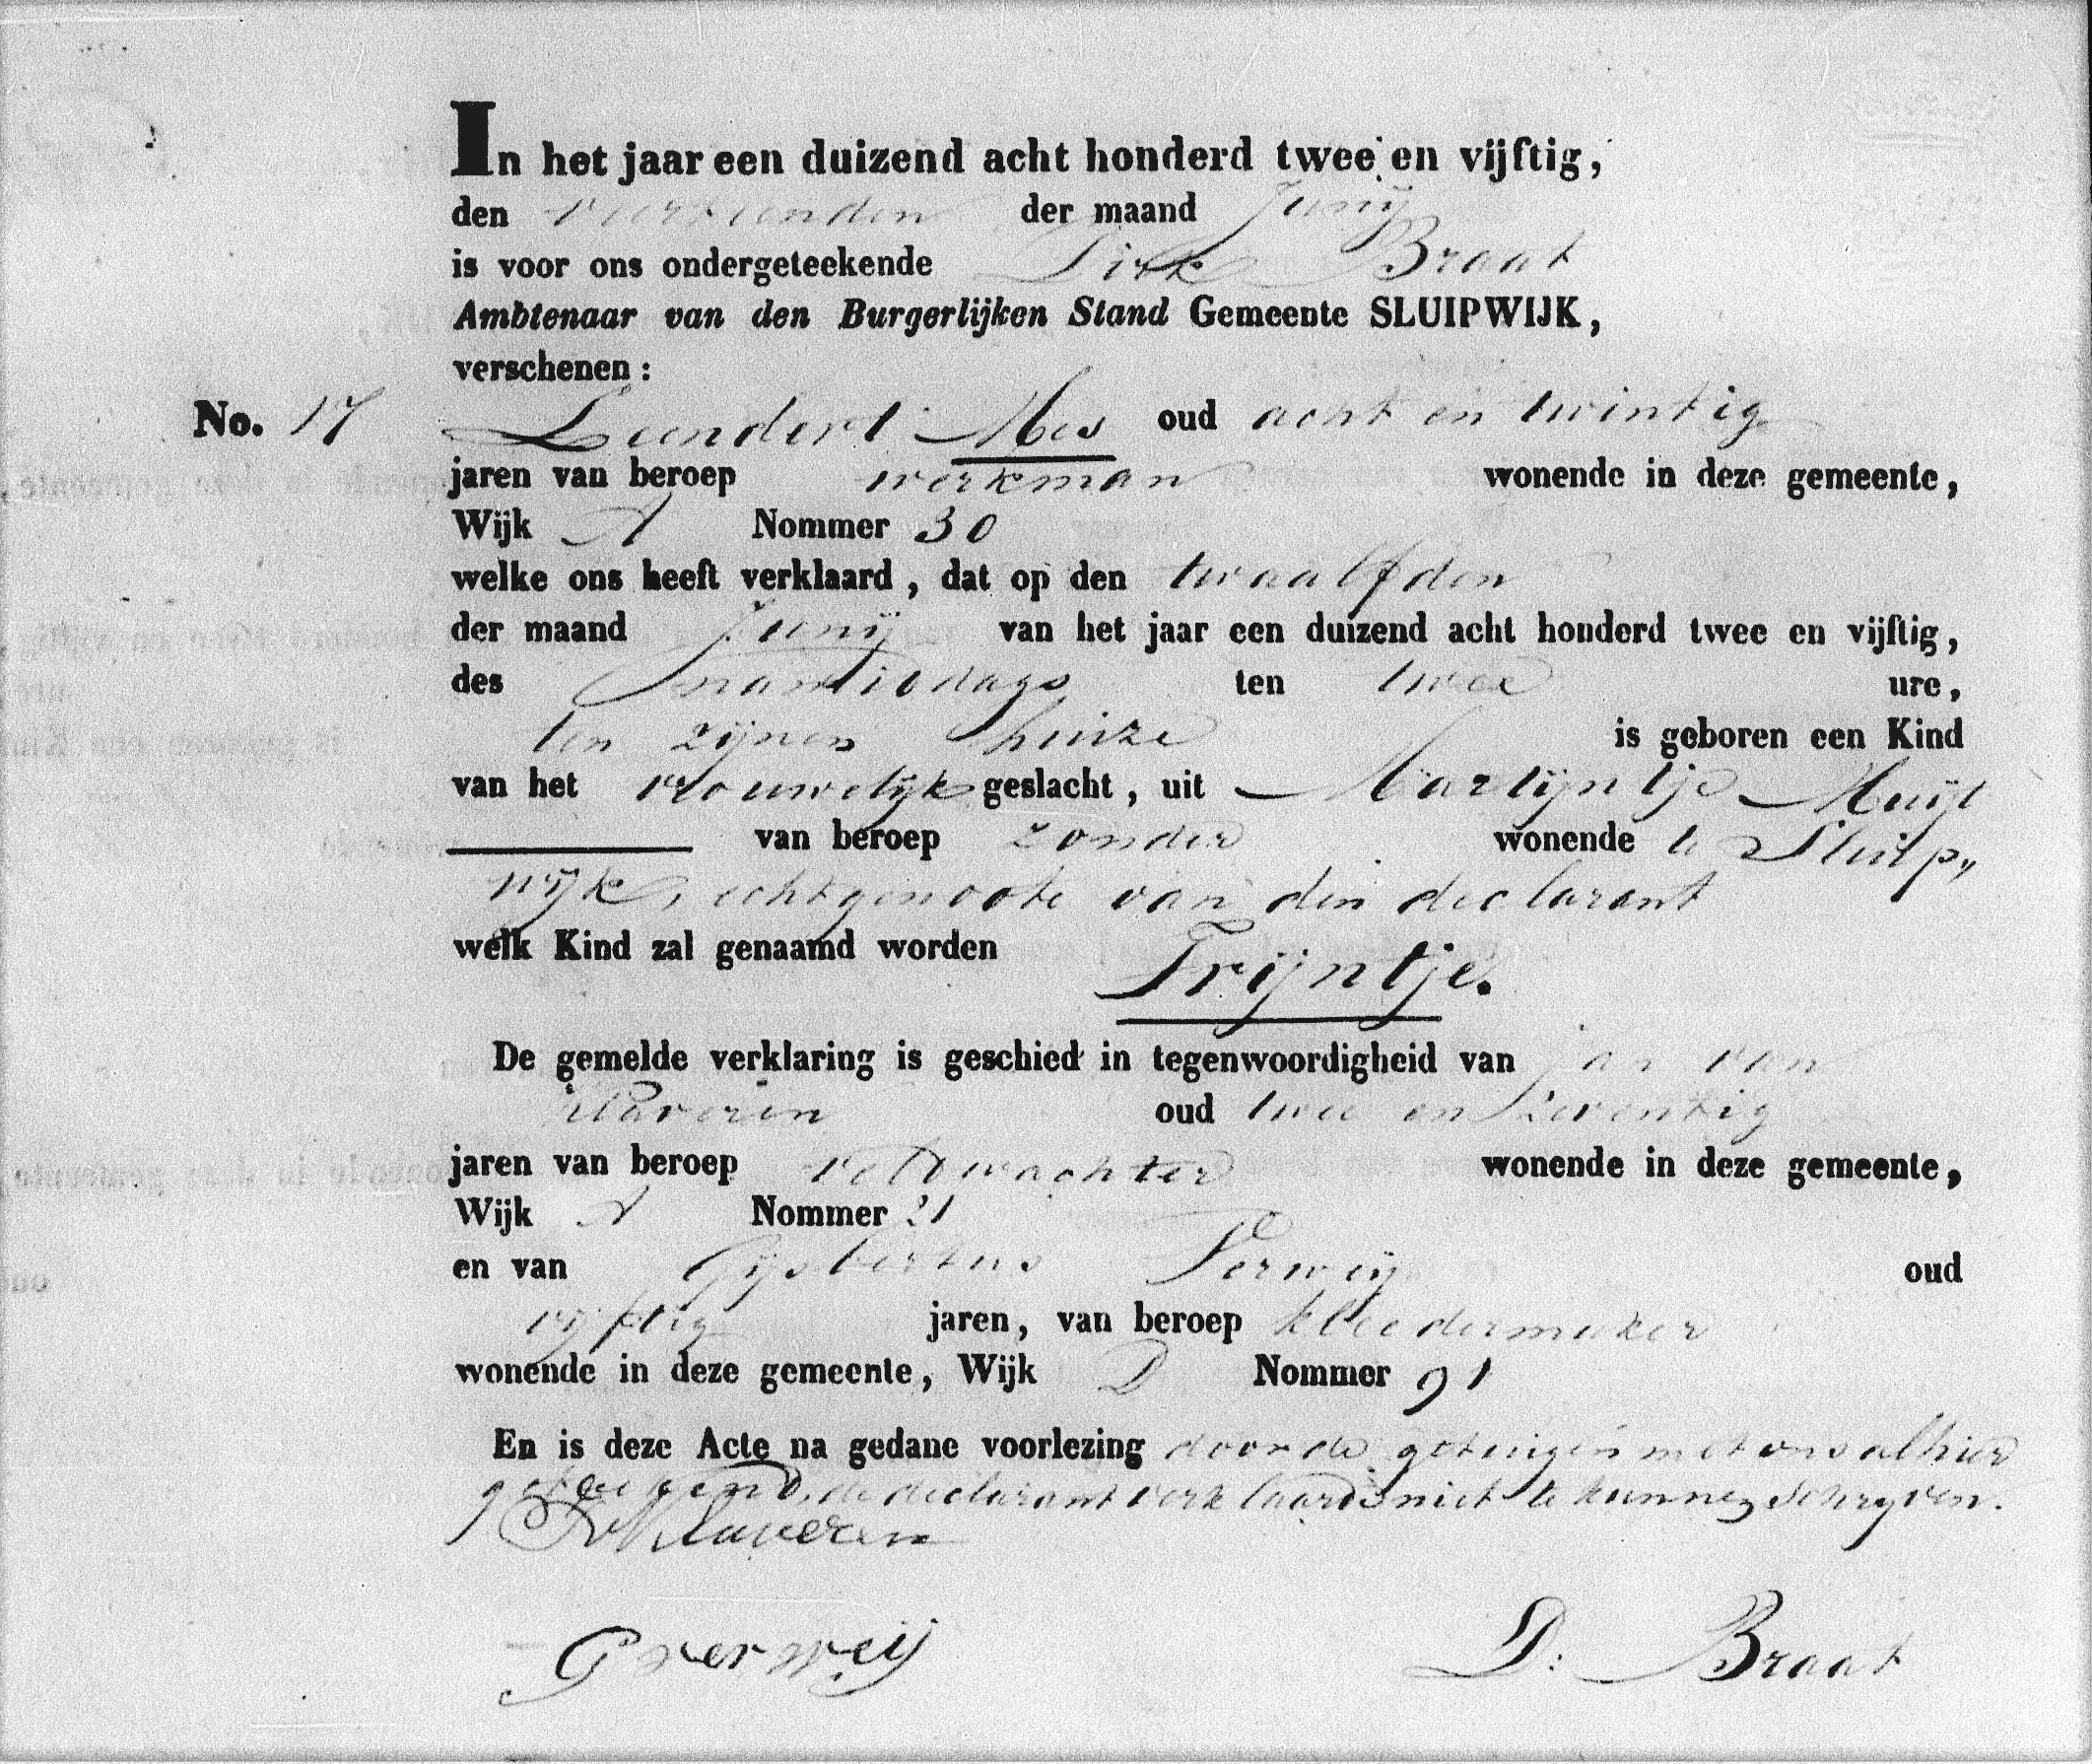 In het jaar een duizend acht honderd twee en vijftig,
den veertienden der maand Junij
is voor ons ondergeteekende Dirk Braat
Ambtenaar van den Burgerlijken Stand Gemeente SLUIPWIJK,
verschenen:
No. 17 Leendert Mes oud acht en twintig
jaren van beroep werkman wonende in deze gemeente,
Wijk A Nommer 30
welke ons heeft verklaard, dat op den twaalfden
der maand Junij van het jaar een duizend acht honderd twee en vijftig,
des namiddags ten twee ure,
ten zijnen huize is geboren een Kind
van het vrouwelijk geslacht, uit Martijntje Muijt
van beroep zonder wonende te Sluip„
wijk, echtgenoote van den declarant
welk Kind zal genaamd worden Trijntje.
De gemelde verklaring is geschied in tegenwoordigheid van Jan van
Klaveren oud twee en zeventig
jaren van beroep veldwachter wonende in deze gemeente,
Wijk A Nommer 21
en van Gijsbertus Verweij oud
vijftig jaren, van beroep kleedermaker
wonende in deze gemeente, Wijk D Nommer 91
En is deze Acte na gedane voorlezing door de getuigen met ons alhier
geteekend, de declarant verklaarde niet te kunnen schrijven.
Klaveren
G verweij D: Braat